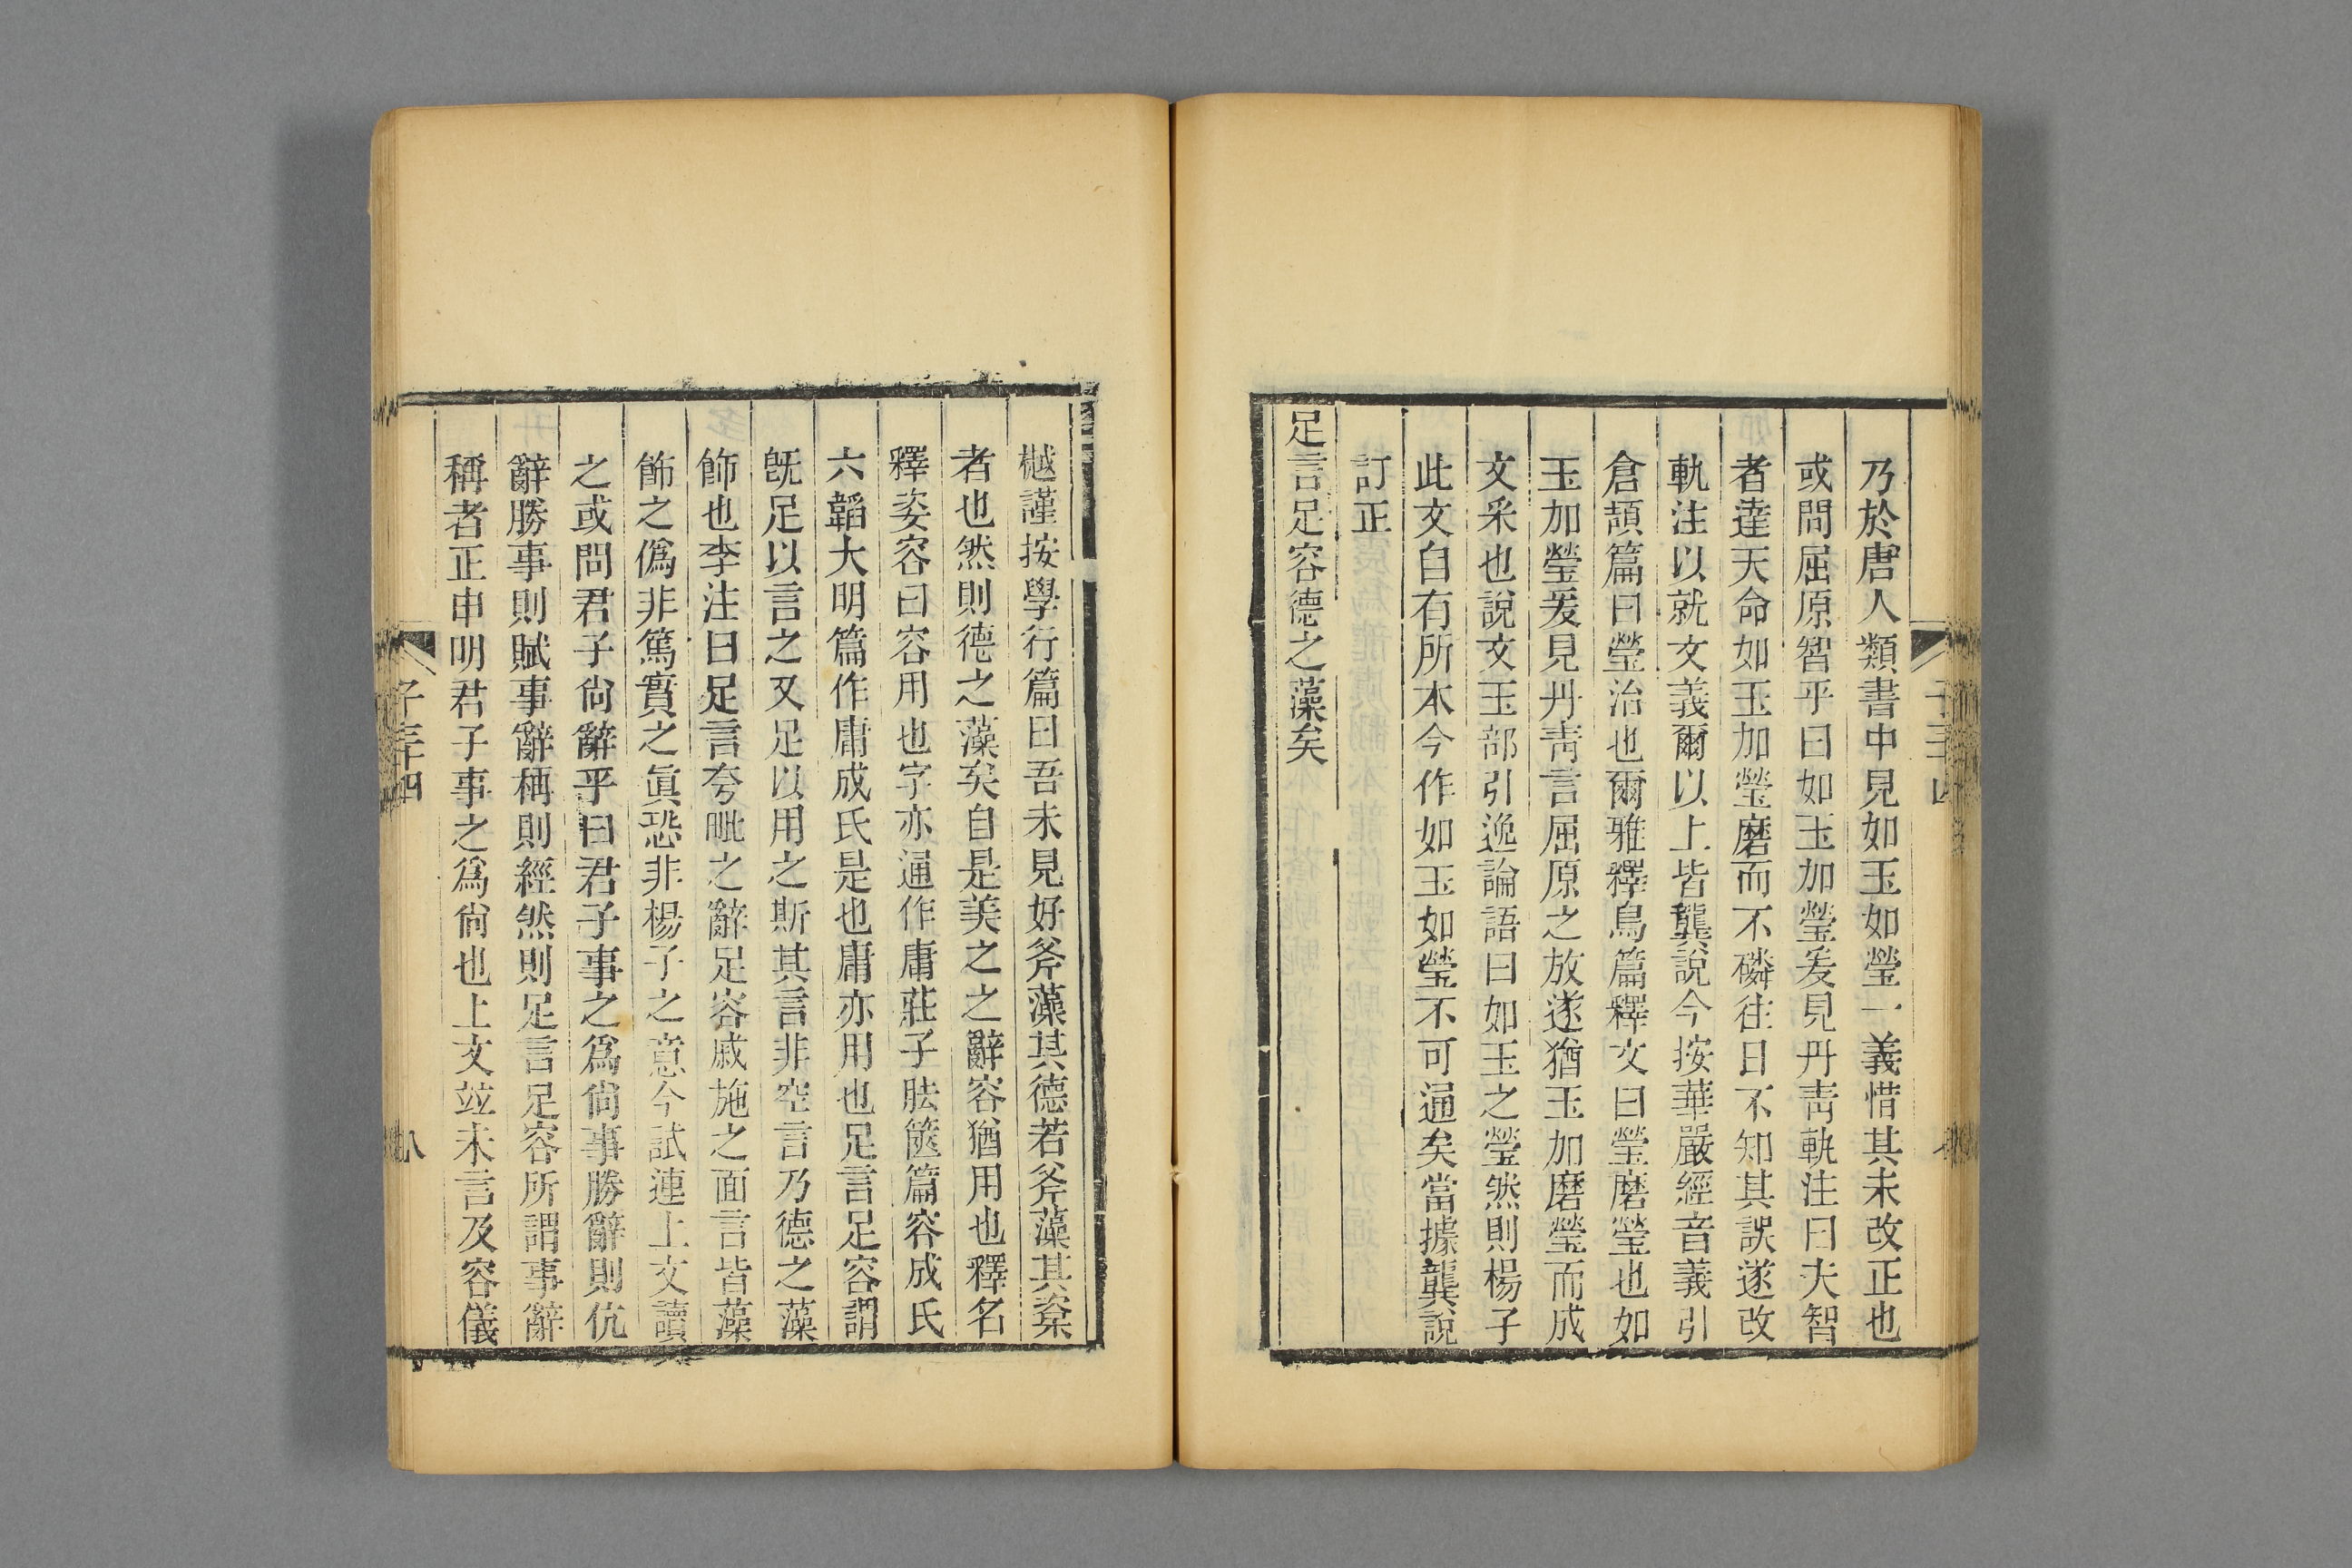 乃於唐人類書中見如玉如瑩一義惜其未改正也
或問屈原智乎曰如玉加瑩爰見丹靑軌注曰夫智
者達天命如玉加瑩磨而不磷往日不知其誤遂改
軌注以就文義爾以上皆龔說今按華嚴經音義引
倉頡篇曰瑩治也爾雅釋鳥篇釋文曰瑩磨瑩也如
玉加瑩爰見丹靑言屈原之放遂猶玉加磨瑩而成
文采也說文玉部引逸論語曰如玉之瑩然則楊子
此文自有所本今作如玉如瑩不可通矣當據龔說
訂正
足言足容德之藻矣
樾謹按學行篇曰吾未見好斧藻其德若斧藻其楶
者也然則德之藻矣自是美之之辭容猶用也釋名
釋姿容曰容用也字亦通作庸莊子胠篋篇容成氏
六韜大明篇作庸成氏是也庸亦用也足言足容謂
旣足以言之又足以用之斯其言非空言乃德之藻
飾也李注曰足言夸毗之辭足容戚施之面言皆藻
飾之僞非篤實之眞恐非楊子之意今試連上文讀
之或問君子尙辭乎曰君子事之爲尙事勝辭則伉
辭勝事則賦事辭稱則經然則足言足容所謂事辭
稱者正申明君子事之爲尙也上文竝未言及容儀
子三十四
八